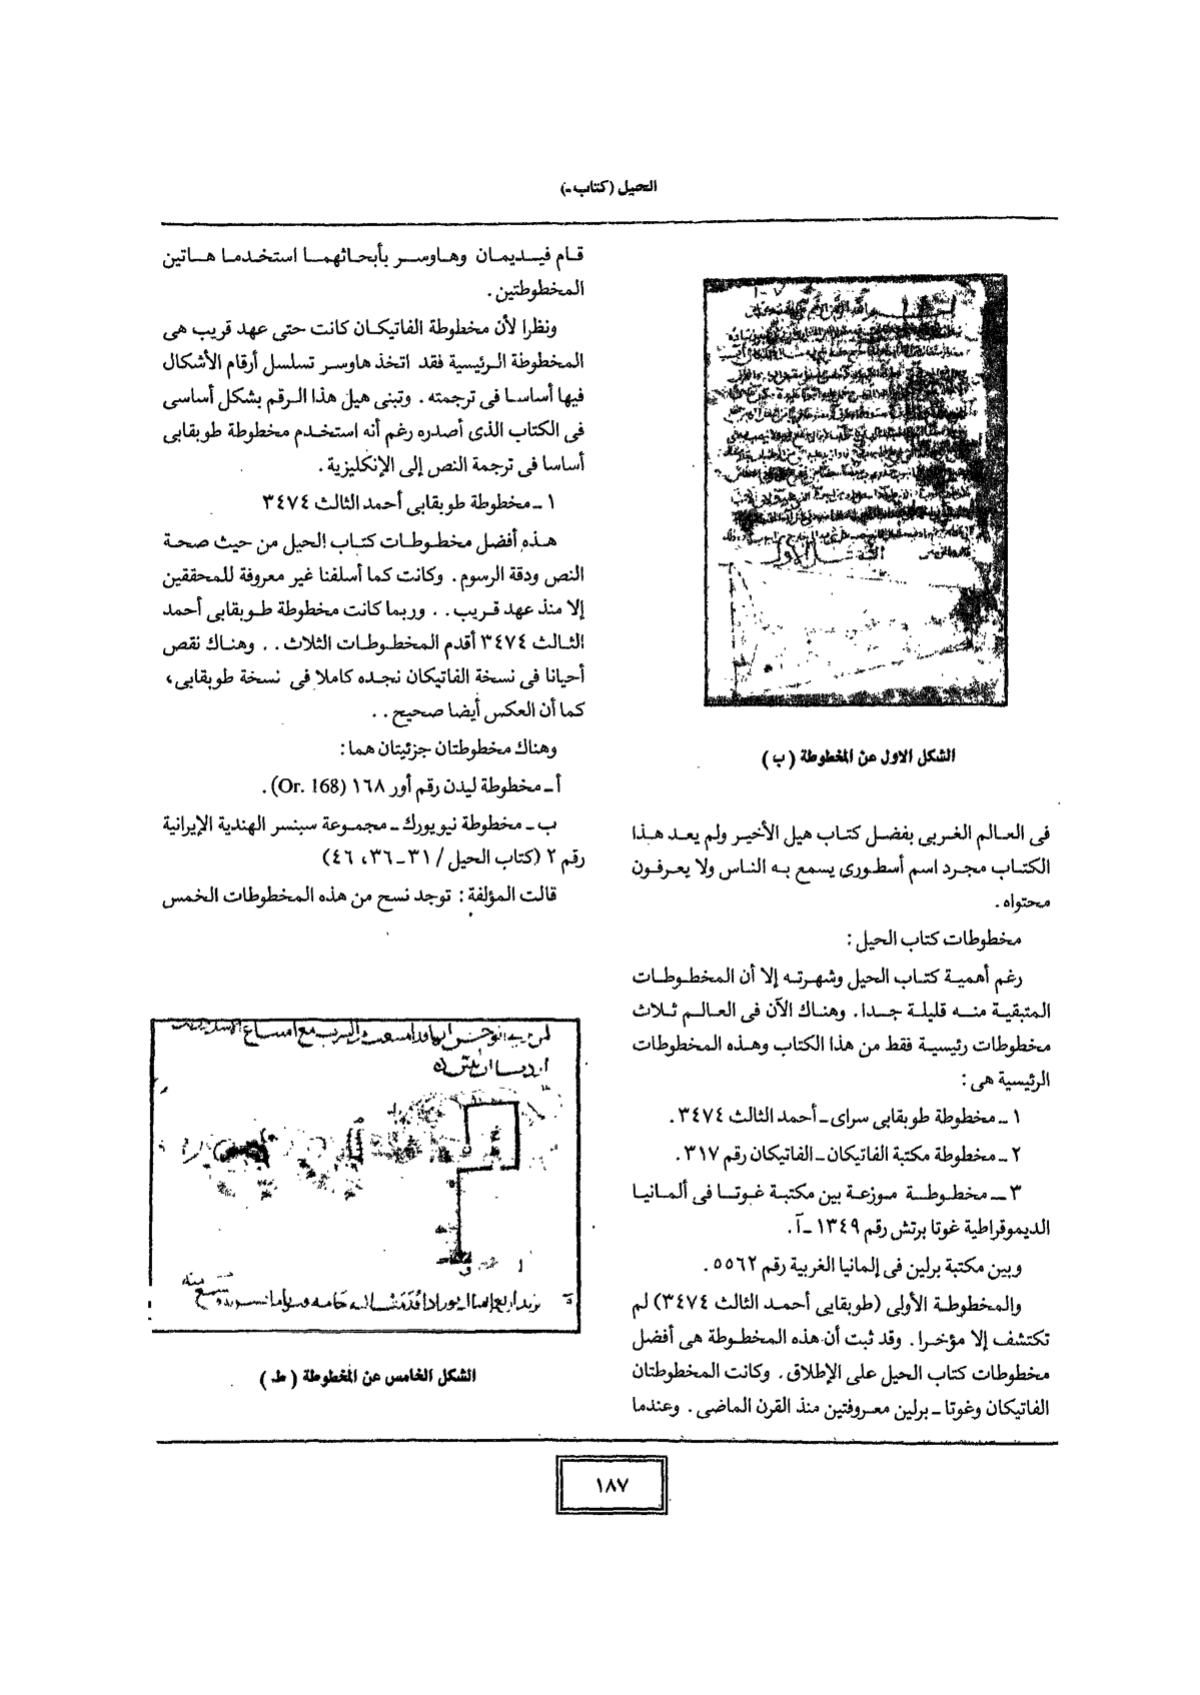 الحيل (كتاب -)
الشكل الاول عن المخطوطة (ب)
فى العالم الغربى بفضل كتاب هيل الأخير ولم يعد هذا
الكتاب مجرد اسم أسطورى يسمع به الناس ولا يعرفون
محتواه.
مخطوطات كتاب الحيل:
رغم أهمية كتاب الحيل وشهرته إلا أن المخطوطات
المتبقية منه قليلة جدا. وهناك الآن فى العالم ثلاث
مخطوطات رئيسية فقط من هذا الكتاب وهذه المخطوطات
الرئيسية هى:
١ ــ مخطوطة طوبقابى سراى ــ أحمد الثالث ٣٤٧٤.
٢ ــ مخطوطة مكتبة الفاتيكان ــ الفاتيكان رقم ٣١٧.
٣ ــ مخطوطة موزعة بين مكتبة غوتا فى ألمانيا
الديموقراطية غوتا برتش رقم ١٣٤٩ ــ آ.
وبين مكتبة برلين فى إلمانيا الغربية رقم ٥٥٦٢.
والمخطوطة الأولى (طوبقابى أحمد الثالث ٣٤٧٤) لم
تكتشف إلا مؤخرا. وقد ثبت أن هذه المخطوطة هى أفضل
مخطوطات كتاب الحيل على الإطلاق. وكانت المخطوطتان
الفاتيكان وغوتا ــ برلين معروفتين منذ القرن الماضى. وعندما
قام فيديمان وهاوسر بأبحاثهما استخدما هاتين
المخطوطتين.
ونظرا لأن مخطوطة الفاتيكان كانت حتى عهد قريب هى
المخطوطة الرئيسية فقد اتخذ هاوسر تسلسل أرقام الأشكال
فيها أساسا فى ترجمته. وتبنى هيل هذا الرقم بشكل أساسى
فى الكتاب الذى أصدره رغم أنه استخدم مخطوطة طوبقابى
أساسا فى ترجمة النص إلى الإنكليزية.
١ ــ مخطوطة طوبقابى أحمد الثالث ٣٤٧٤
هذه أفضل مخطوطات كتاب الحيل من حيث صحة
النص ودقة الرسوم. وكانت كما أسلفنا غير معروفة للمحققين
إلا منذ عهد قريب.. وربما كانت مخطوطة طوبقابى أحمد
الثالث ٣٤٧٤ أقدم المخطوطات الثلاث.. وهناك نقص
أحيانا فى نسخة الفاتيكان نجده كاملا فى نسخة طوبقابى،
كما أن العكس أيضا صحيح..
وهناك مخطوطتان جزئيتان هما:
أ ــ مخطوطة ليدن رقم أور ١٦٨ (Or. 168).
ب ــ مخطوطة نيويورك ــ مجموعة سبنسر الهندية الإيرانية
رقم ٢ (كتاب الحيل / ٣١ ــ ٣٦، ٤٦)
قالت المؤلفة: توجد نسخ من هذه المخطوطات الخمس
الشكل الخامس عن المخطوطة (ط)
١٨٧